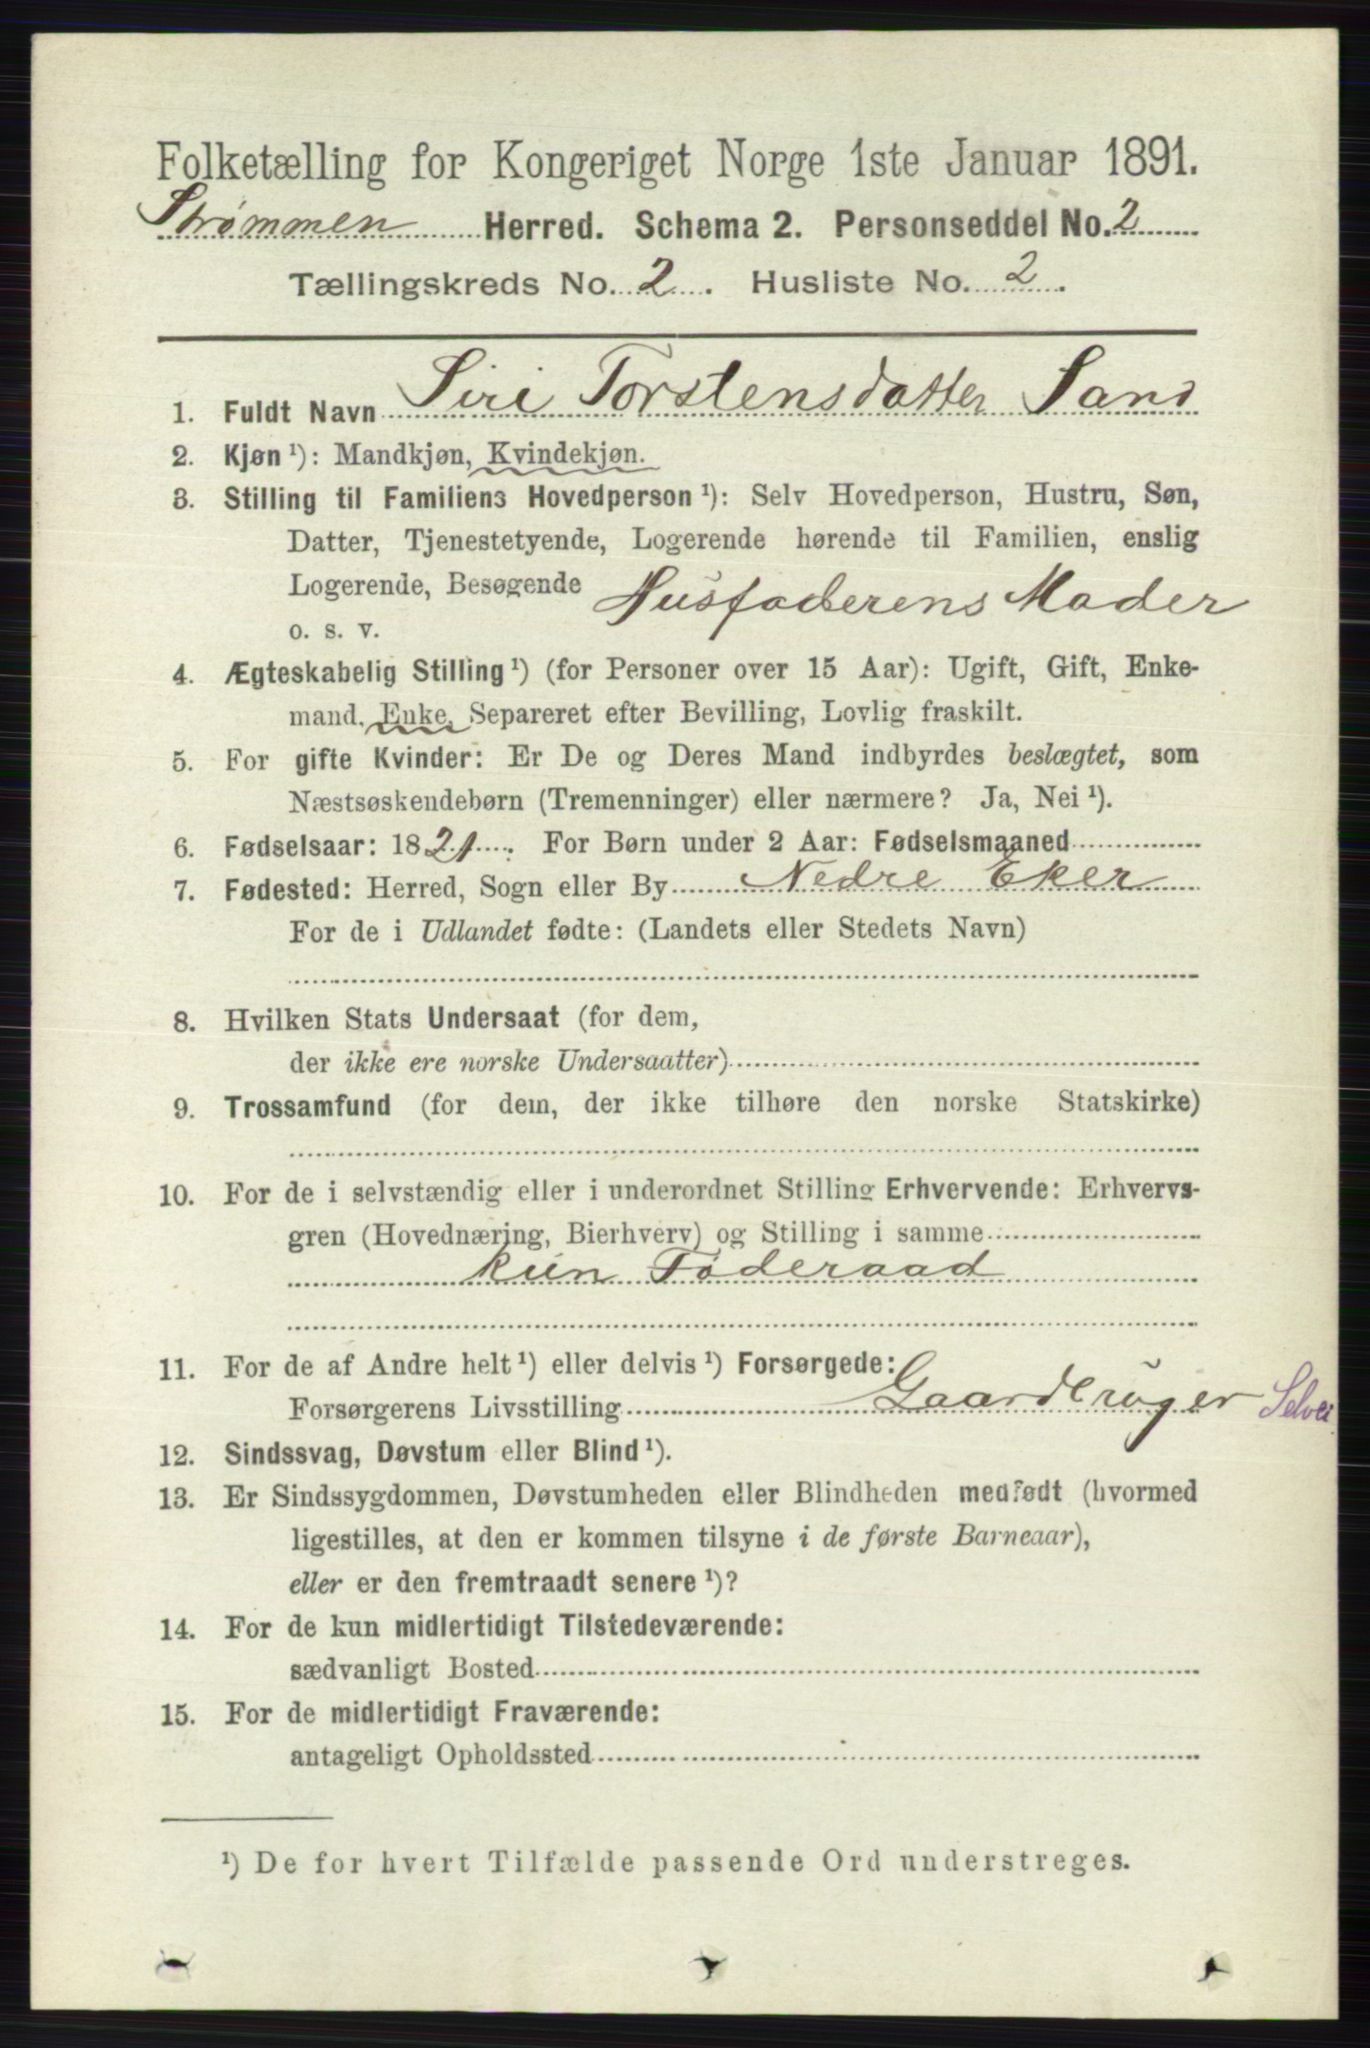 Folketælling for Kongeriget Norge 1ste Januar 1891.
Strømmen Herred. Schema 2. Personseddel No. 2
Tællingskreds No. 2. Husliste No. 2.
1. Fuldt Navn Siri Torstensdatter Sand
2. Kjøn ¹): Mandkjøn, Kvindekjøn.
3. Stilling til Familiens Hovedperson ¹): Selv Hovedperson, Hustru, Søn,
Datter, Tjenestetyende, Logerende hørende til Familien, enslig
Logerende, Besøgende Husfaderens Moder
o. s. v.
4. Ægteskabelig Stilling ¹) (for Personer over 15 Aar): Ugift, Gift, Enke-
mand, Enke, Separeret efter Bevilling, Lovlig fraskilt.
5. For gifte Kvinder: Er De og Deres Mand indbyrdes beslægtet, som
Næstsøskendebørn (Tremenninger) eller nærmere? Ja, Nei ¹).
6. Fødselsaar: 1821. For Børn under 2 Aar: Fødselsmaaned
7. Fødested: Herred, Sogn eller By Nedre Eker
For de i Udlandet fødte: (Landets eller Stedets Navn)
8. Hvilken Stats Undersaat (for dem,
der ikke ere norske Undersaatter)
9. Trossamfund (for dem, der ikke tilhøre den norske Statskirke)
10. For de i selvstændig eller i underordnet Stilling Erhvervende: Erhvervs-
gren (Hovednæring, Bierhverv) og Stilling i samme
kun Føderaad
11. For de af Andre helt ¹) eller delvis ¹) Forsørgede:
Forsørgerens Livsstilling Gaardbruger Selvei
12. Sindssvag, Døvstum eller Blind ¹).
13. Er Sindssygdommen, Døvstumheden eller Blindheden medfødt (hvormed
ligestilles, at den er kommen tilsyne i de første Barneaar),
eller er den fremtraadt senere ¹)?
14. For de kun midlertidigt Tilstedeværende:
sædvanligt Bosted
15. For de midlertidigt Fraværende:
antageligt Opholdssted
¹) De for hvert Tilfælde passende Ord understreges.